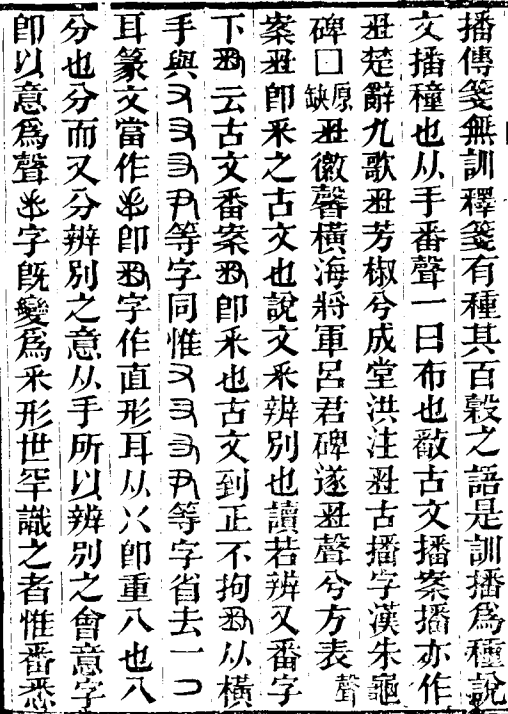 播傳箋無訓釋箋有種其百穀之語是訓播爲種說
文播穜也从手番聲一曰布也敽古文播案播亦作
𠄔楚辭九歌𠄔芳椒兮成堂洪注𠄔古播字漢朱龜
碑囗原缺𠄔徽馨橫海將軍呂君碑遂𠄔聲兮方表聲
案𠄔卽釆之古文也說文釆辨別也讀若辨又番字
下云古文番案卽釆也古文到正不拘从橫
手與等字同惟等字省去一
耳篆文當作卽字作直形耳从八卽重八也八
分也分而又分辨別之意从手所以辨別之會意字
卽以意爲聲字旣變爲釆形世罕識之者惟番悉